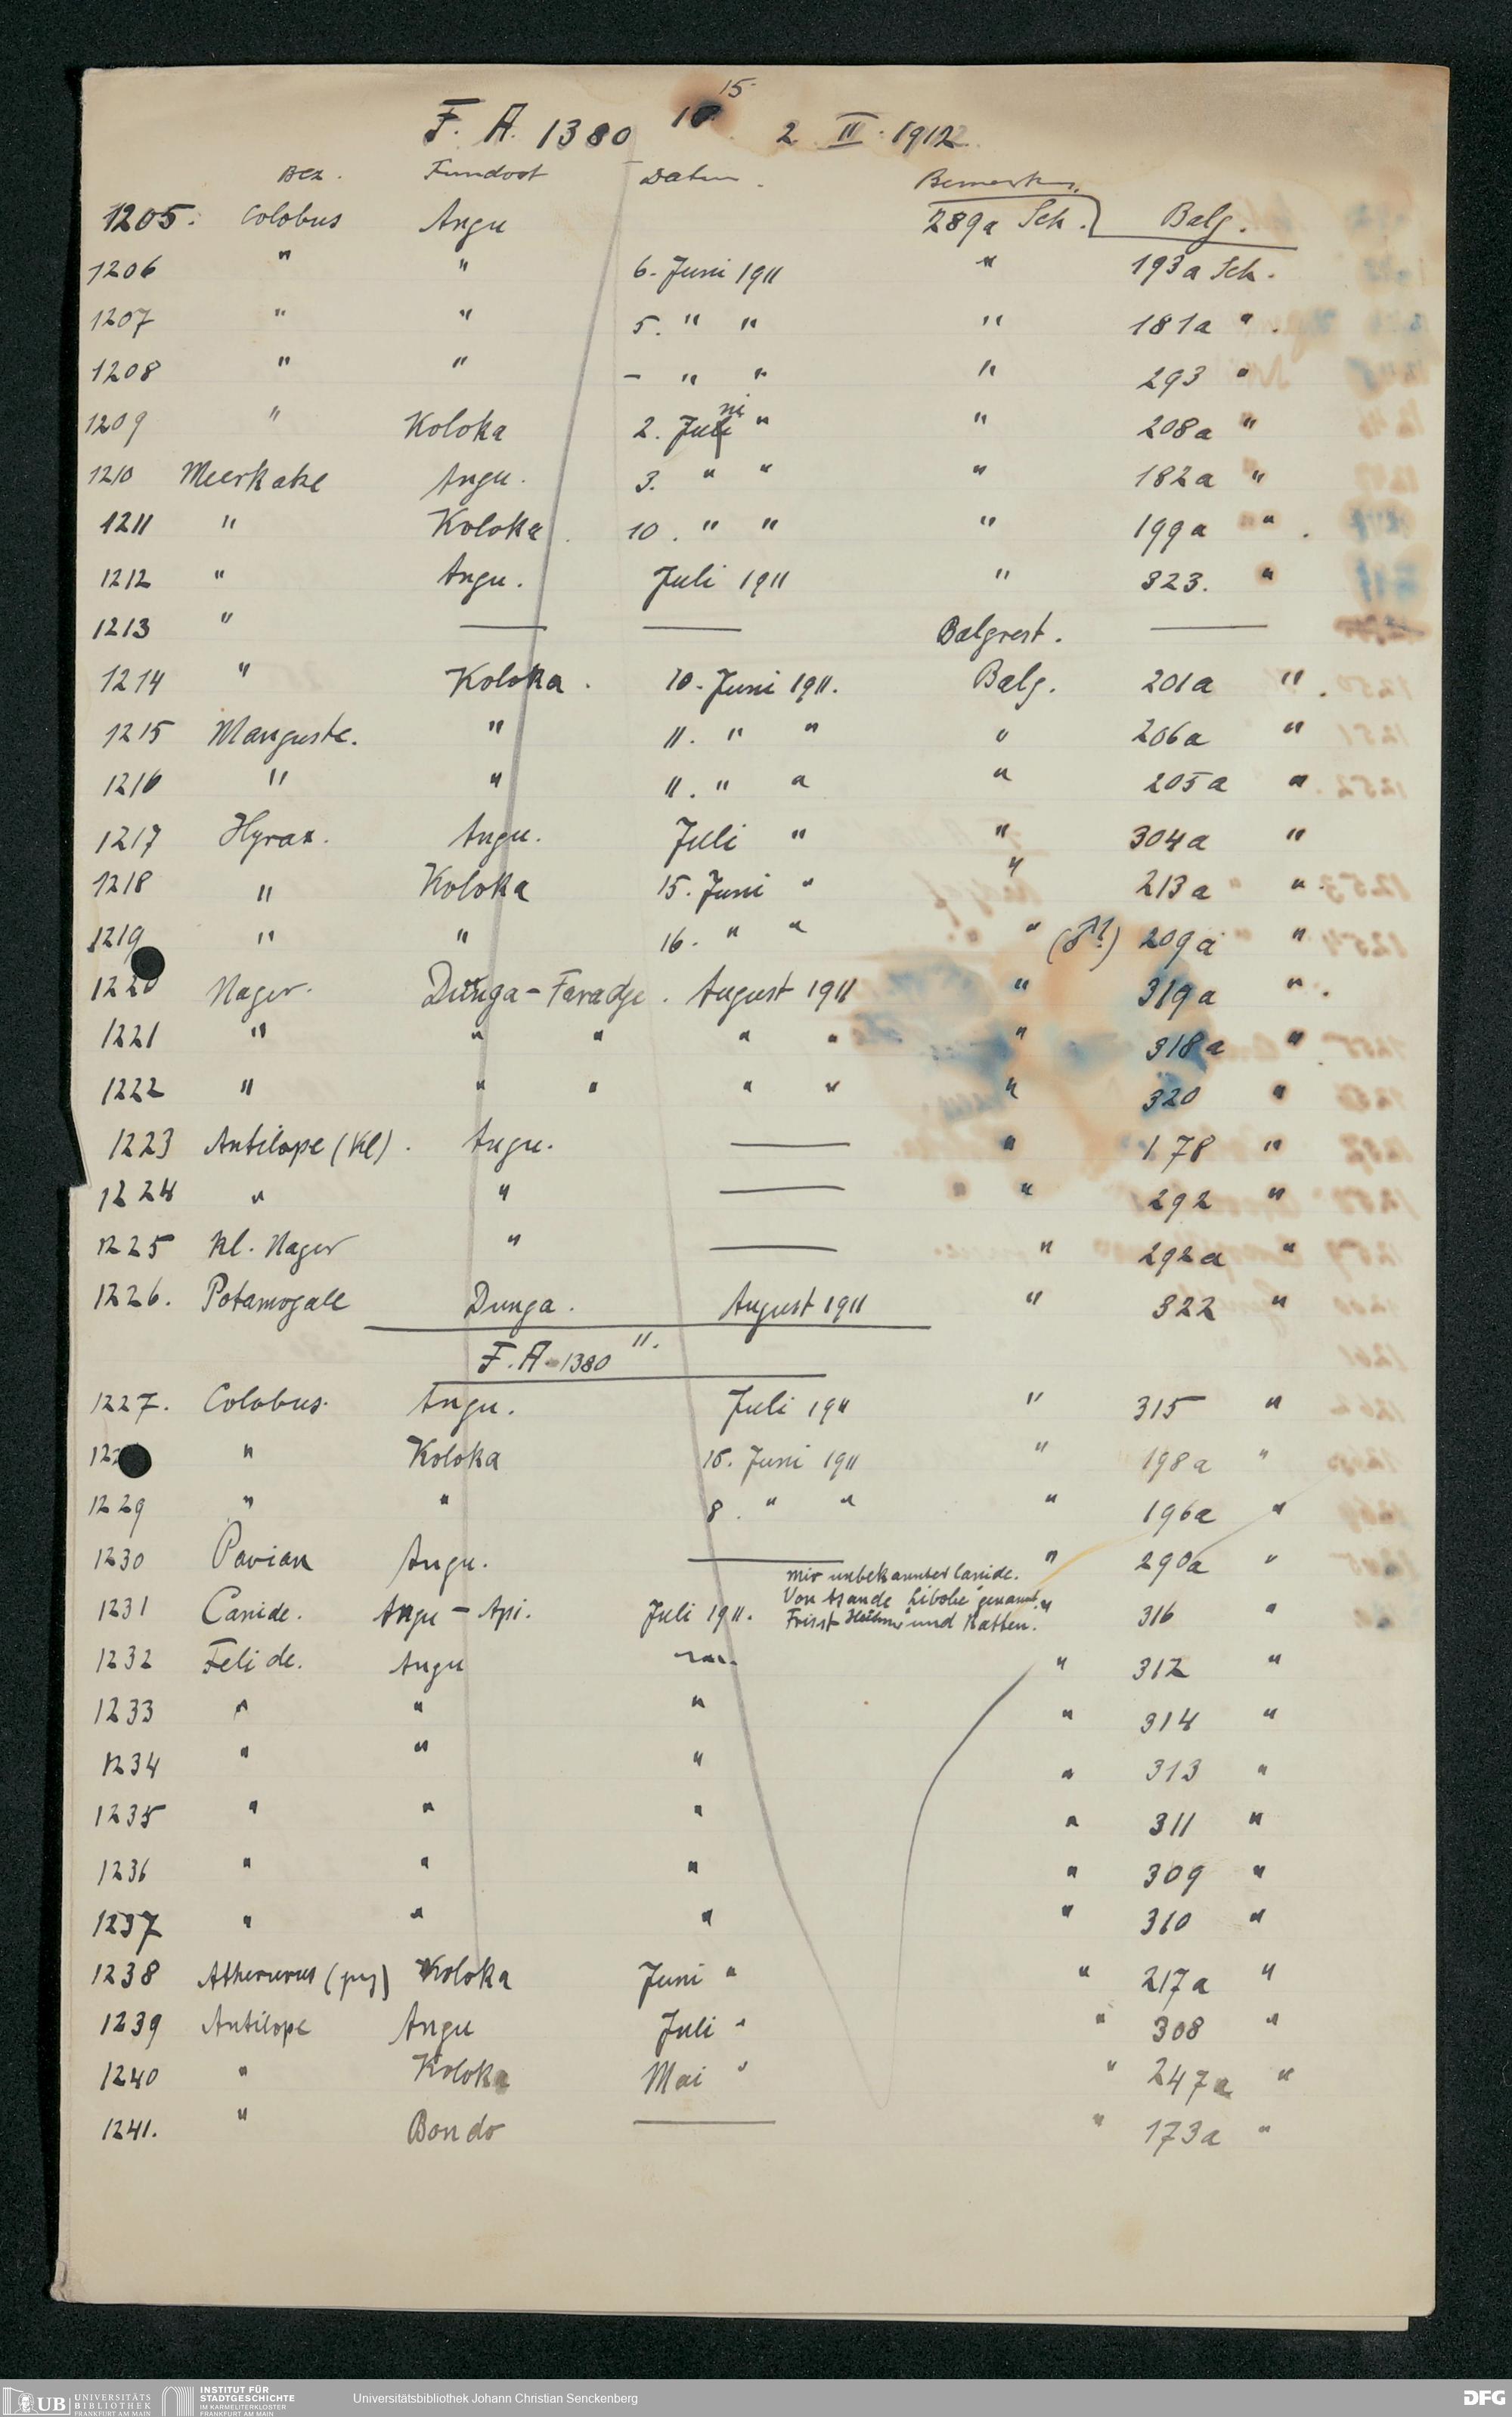 15
F. A. 1380 2. II. 1912
Bez. Fundort Datum. Bemerkn.
1205. Colobus Angu 289a Sch. Balg.
1206 " " 6. Juni 1911 " 193a Sch.
1207 " " 5. " " " 181a " .
1208 " " – " " " 293 "
1209 " Koloka 2. Juni " " 208a "
1210 Meerkatze Angu. 3. " " " 182a "
1211 " Koloka . 10. " " " 199a " .
1212 " Angu. Juli 1911 " 323. "
1213 " — — Balgrest. —
1214 " Koloka . 10. Juni 1911. Balg. 201a " .
1215 Manguste. " 11. " " " 206a "
1216 " " 11. " " " 205a " .
1217 Hyrax. Angu. Juli " " 304a "
1218 " Koloka 15. Juni " " 213a " .
1219 " " 16. " " " 209a "
1220 Nager. Dunga – Faradje . August 1911 " 319a " .
1221 " " " " " " 318a " .
1222 " " " " " " 320 "
1223 Antilope (kl) . Angu. — " 178 "
1224 " " — " 292 "
1225 kl. Nager " — " 292a "
1226. Potamogale Dunga . August 1911 " 322 "
F. A. 1380 11.
1227. Colobus. Angu. Juli 1911 " 315 "
" Koloka Juni 1911 " 198a "
1229 " " 8. " " " 196a "
1230 Pavian Angu. — " 290a "
mir unbekannter Canide.
Von Asande "Libolie" genannt.
1231 Canide. Angu – Api. Juli 1911. Frisst Hühner und Ratten. " 316 "
1232 Felide. Angu " 312 "
1233 " " " " 314 "
1234 " " " " 313 "
1235 " " " " 311 "
1236 " " " " 309 "
1237 " " " " 310 "
1238 Atherurus Koloka Juni " " 217a "
1239 Antilope Angu Juli " " 308 "
1240 " Koloka Mai " " 247a "
1241. " Bondo — " 173a "
UB UNIVERSITÄTS BIBLIOTHEK FRANKFURT AM MAIN
INSTITUT FÜR STADTGESCHICHTE IM KARMELITERKLOSTER FRANKFURT AM MAIN
Universitätsbibliothek Johann Christian Senckenberg
DFG